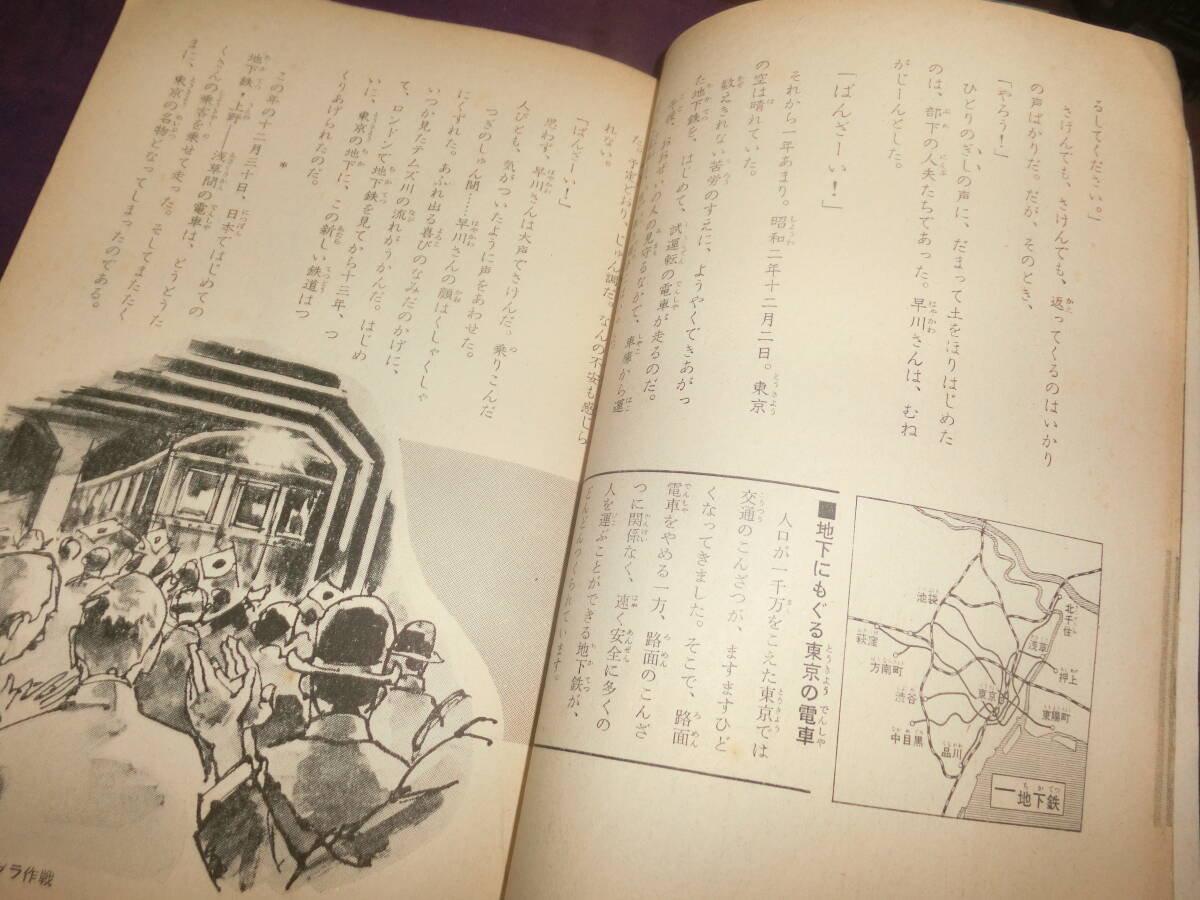 るしてください。」
さけんでも、さけんでも、返ってくるのはいかり
の声ばかりだ。だが、そのとき、
「やろう！」
ひとりのぎしの声に、だまって土をほりはじめた
のは、部下の人夫たちであった。早川さんは、むね
がじーんとした。
「ばんざーい！」
それから一年あまり。昭和二年十二月二日。東京
の空は晴れていた。
数えきれない苦労のすえに、ようやくできあがっ
た地下鉄を、はじめて、試運転の電車が走るのだ。
おおぜいの人の見守るなかで、車庫から運
■地下にもぐる東京の電車
人口が一千万をこえた東京では
交通のこんざつが、ますますひど
くなってきました。そこで、路面
電車をやめる一方、路面のこんざ
つに関係なく、速く安全に多くの
人を運ぶことができる地下鉄が、
どんどんつくられています。
池袋
北千住
荻窪
方南町
浅草
押上
渋谷
東京
東陽町
中目黒
品川
地下鉄
予定どおり、じゅん調だ。なんの不安も感じら
れない。
「ばんざーい！」
思わず、早川さんは大声でさけんだ。乗りこんだ
人びとも、気がついたように声をあわせた。
つぎのしゅん間……早川さんの顔はくしゃくしゃ
にくずれた。あふれ出る喜びのなみだのかげに、
いつか見たテムズ川の流れがうかんだ。はじめ
て、ロンドンで地下鉄を見てから十三年、つ
いに、東京の地下に、この新しい鉄道はつ
くりあげられたのだ。
＊
この年の十二月三十日、日本ではじめての
地下鉄・上野——浅草間の電車は、どうどうた
くさんの乗客を乗せて走った。そしてまたたく
まに、東京の名物となってしまったのである。
ラ作戦